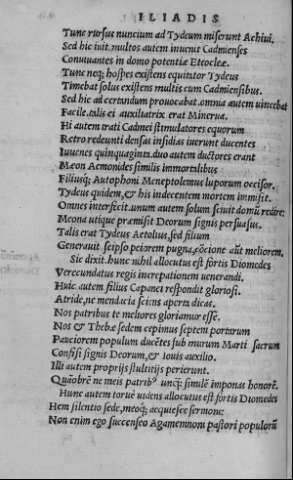 ILIADIS
Tunc rursus nuncium ad Tydeum miserunt Achiui.
Sed hic iuit. multos autem inuenit Cadmienses
Conuiuantes in domo potentiæ Eteocleæ.
Tunc neq; hospes existens equitator Tydeus
Timebat solus existens multis cum Cadmiensibus.
Sed hic ad certandum prouocabat. omnia autem uincebat
Facile. talis ei auxiliatrix erat Minerua.
Hi autem irati Cadmei stimulatores equorum
Retro redeunti densas insidias iuerunt ducentes
Iuuenes quinquaginta. duo autem ductores erant
Mæon Aemonides similis immortalibus
Filiusq; Autophoni Meneptolemus luporum occisor.
Tydeus quidem, & his indecentem mortem immisit.
Omnes interfecit. unum autem solum sciuit domũ redire:
Meona utique præmisit Deorum signis persuasus.
Talis erat Tydeus Aetolius, sed filium
Generauit seipso peiorem pugna, cõcione aũt meliorem.
Sic dixit. hunc nihil allocutus est fortis Diomedes
Verecundatus regis increpationem uenerandi.
Huic autem filius Capanei respondit gloriosi.
Atride, ne mendacia sciens aperta dicas.
Nos patribus te meliores gloriamur esse.
Nos & Thebæ sedem cepimus septem portarum
Pauciorem populum ducẽtes sub murum Marti sacrum
Confisi signis Deorum, & Iouis auxilio.
Illi autem proprijs stultitijs perierunt.
Quãobrẽ ne meis patribꝰ unq̃; similẽ imponas honorẽ.
Hunc autem torue uidens allocutus est fortis Diomedes
Hem silentio sede, meoq; acquiesce sermoni:
Non enim ego succenseo Agamemnoni pastori populorũ